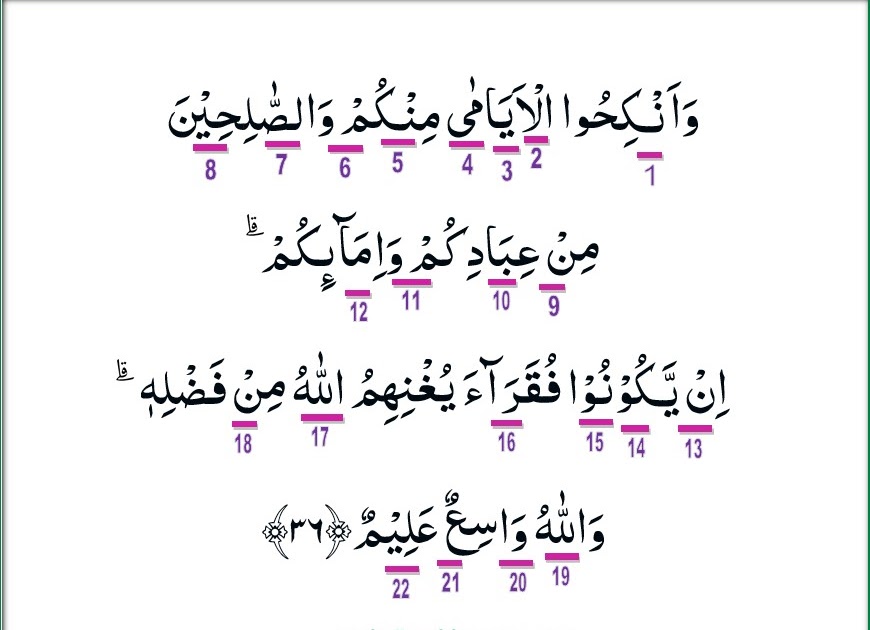 وَاَنْكِحُوا الْاَيَامٰى مِنْكُمْ وَالصّٰلِحِيْنَ
8 7 6 5 4 3 2 1
مِنْ عِبَادِكُمْ وَاِمَاۤىِٕكُمْ ۗ
12 11 10 9
اِنْ يَّكُوْنُوْا فُقَرَاۤءَ يُغْنِهِمُ اللّٰهُ مِنْ فَضْلِهٖ ۗ
18 17 16 15 14 13
وَاللّٰهُ وَاسِعٌ عَلِيْمٌ ﴿٣٦﴾
22 21 20 19